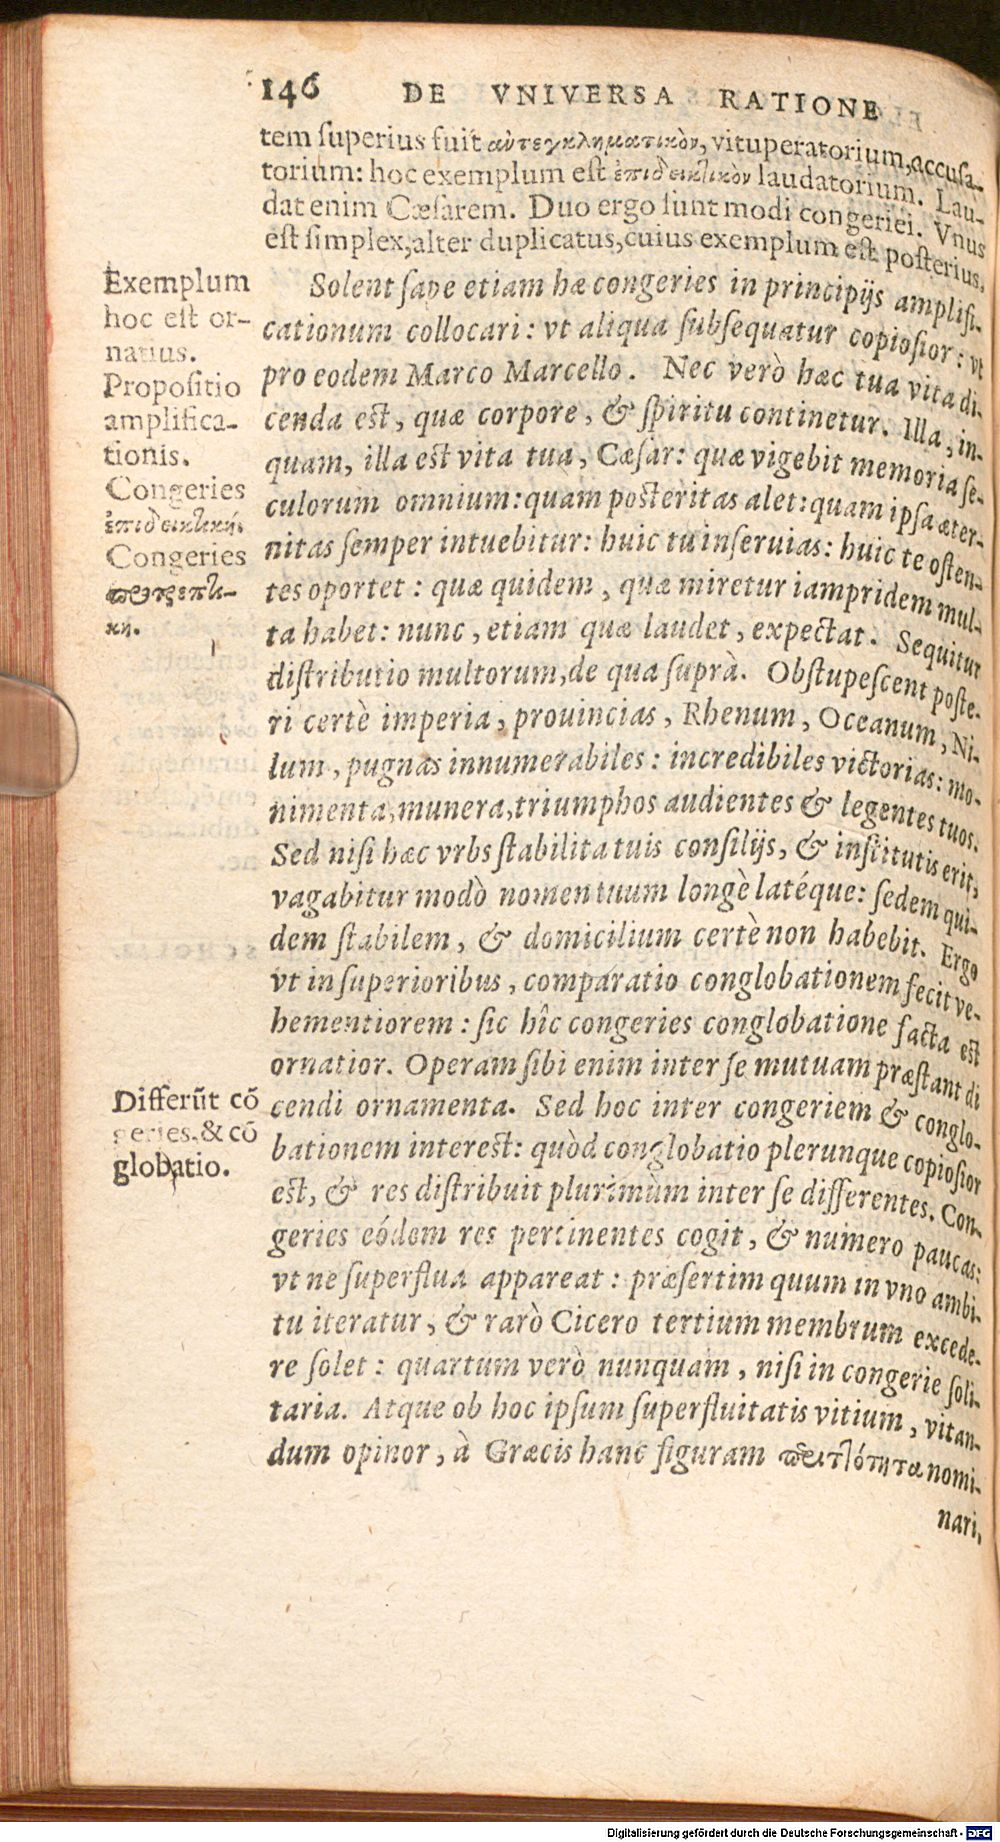 146 DE VNIVERSA RATIONE
tem ſuperius fuit αὐτεγκληματικὸν, vituperatorium, accuſa-
torium: hoc exemplum eſt ἐπιδεικτικὸν laudatorium. Lau-
dat enim Cæſarem. Duo ergo ſunt modi congeriei. Vnus
eſt ſimplex, alter duplicatus, cuius exemplum eſt poſterius,
Exemplum
hoc eſt or-
natius.
Propoſitio
amplifica-
tionis.
Congeries
ἐπιδεικτική.
Congeries
προτρεπτι-
κή.
Solent ſæpe etiam hæ congeries in principijs amplifi-
cationum collocari: vt aliqua ſubſequatur copioſior: vt
pro eodem Marco Marcello. Nec verò hæc tua vita di-
cenda eſt, quæ corpore, & ſpiritu continetur. Illa, in-
quam, illa eſt vita tua, Cæſar: quæ vigebit memoria ſe-
culorum omnium: quam poſteritas alet: quam ipſa æter-
nitas ſemper intuebitur: huic tu inſeruias: huic te oſten-
tes oportet: quæ quidem, quæ miretur iampridem mul-
ta habet: nunc, etiam quæ laudet, expectat. Sequitur
diſtributio multorum, de qua ſuprà. Obſtupeſcent poſte-
ri certè imperia, prouincias, Rhenum, Oceanum, Ni-
lum, pugnas innumerabiles: incredibiles victorias: mo-
nimenta, munera, triumphos audientes & legentes tuos.
Sed niſi hæc vrbs ſtabilita tuis conſilijs, & inſtitutis erit,
vagabitur modò nomen tuum longè latéque: ſedem qui-
dem ſtabilem, & domicilium certè non habebit. Ergo
vt in ſuperioribus, comparatio conglobationem fecit ve-
hementiorem: ſic hîc congeries conglobatione facta eſt
ornatior. Operam ſibi enim inter ſe mutuam præſtant di
cendi ornamenta. Sed hoc inter congeriem & conglo-
bationem intereſt: quòd conglobatio plerunque copioſior
eſt, & res diſtribuit plurimùm inter ſe differentes. Con-
geries eódem res pertinentes cogit, & numero paucas:
vt ne ſuperflua appareat: præſertim quum in vno ambi-
tu iteratur, & rarò Cicero tertium membrum excede-
re ſolet: quartum verò nunquam, niſi in congerie ſoli-
taria. Atque ob hoc ipſum ſuperfluitatis vitium, vitan-
dum opinor, à Græcis hanc figuram περιττότητα nomi-
nari,
Differūt cō
geries, & cō
globatio.
Digitalisierung gefördert durch die Deutsche Forschungsgemeinschaft - DFG